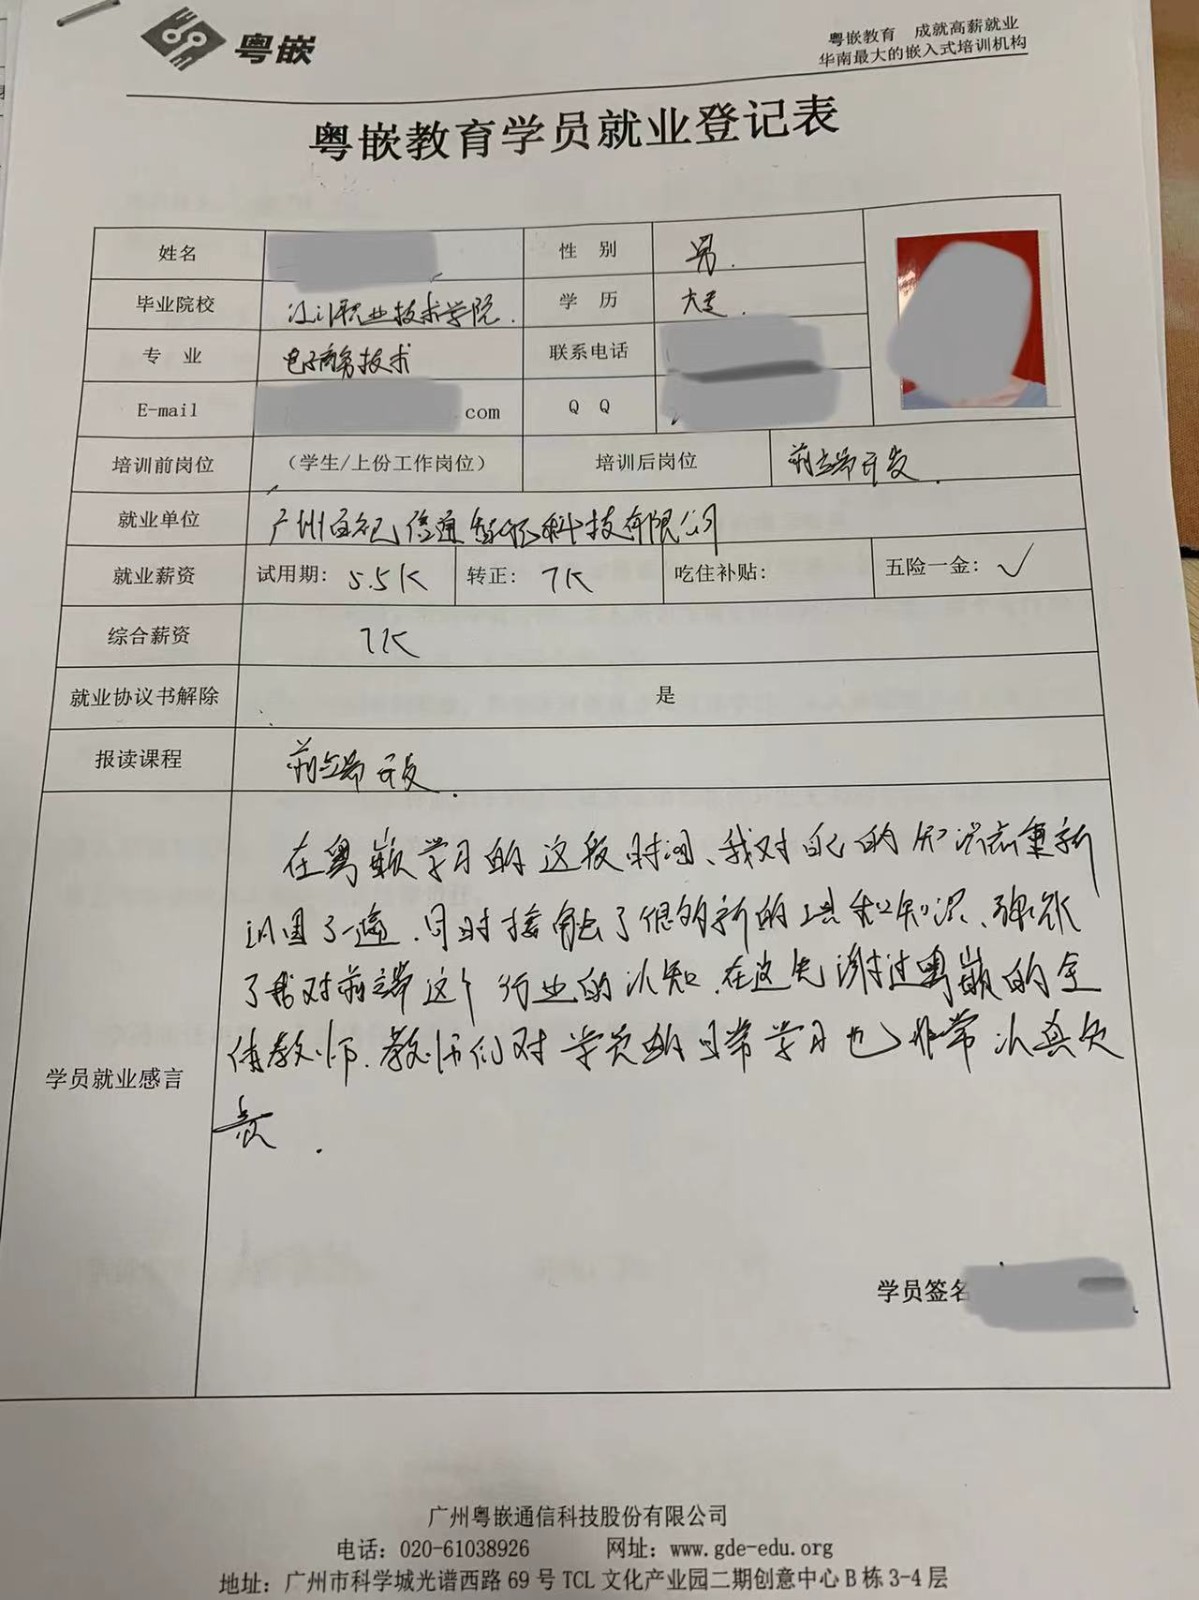 粤嵌
粤嵌教育 成就高薪就业
华南最大的嵌入式培训机构
粤嵌教育学员就业登记表
姓名 性 别 男.
毕业院校 江门职业技术学院. 学 历 大专.
专 业 电子商务技术 联系电话
E-mail com Q Q
培训前岗位 (学生/上份工作岗位) 培训后岗位 前端开发.
就业单位 广州 信通 科技有限公司
就业薪资 试用期: 5.5K 转正: 7K 吃住补贴: 五险一金: ✓
综合薪资 7K
就业协议书解除 是
报读课程 前端开发.
在粤嵌学习的这段时间、我对自己的知识点重新
巩固了一遍.同时接触了很多新的 知识、
了我对前端这个行业的认知.在这先谢过粤嵌的全
体教师.教师们对学员的日常学习也非常认真负
责.
学员就业感言
学员签名
广州粤嵌通信科技股份有限公司
电话: 020-61038926 网址: www.gde-edu.org
地址: 广州市科学城光谱西路69号TCL文化产业园二期创意中心B栋3-4层